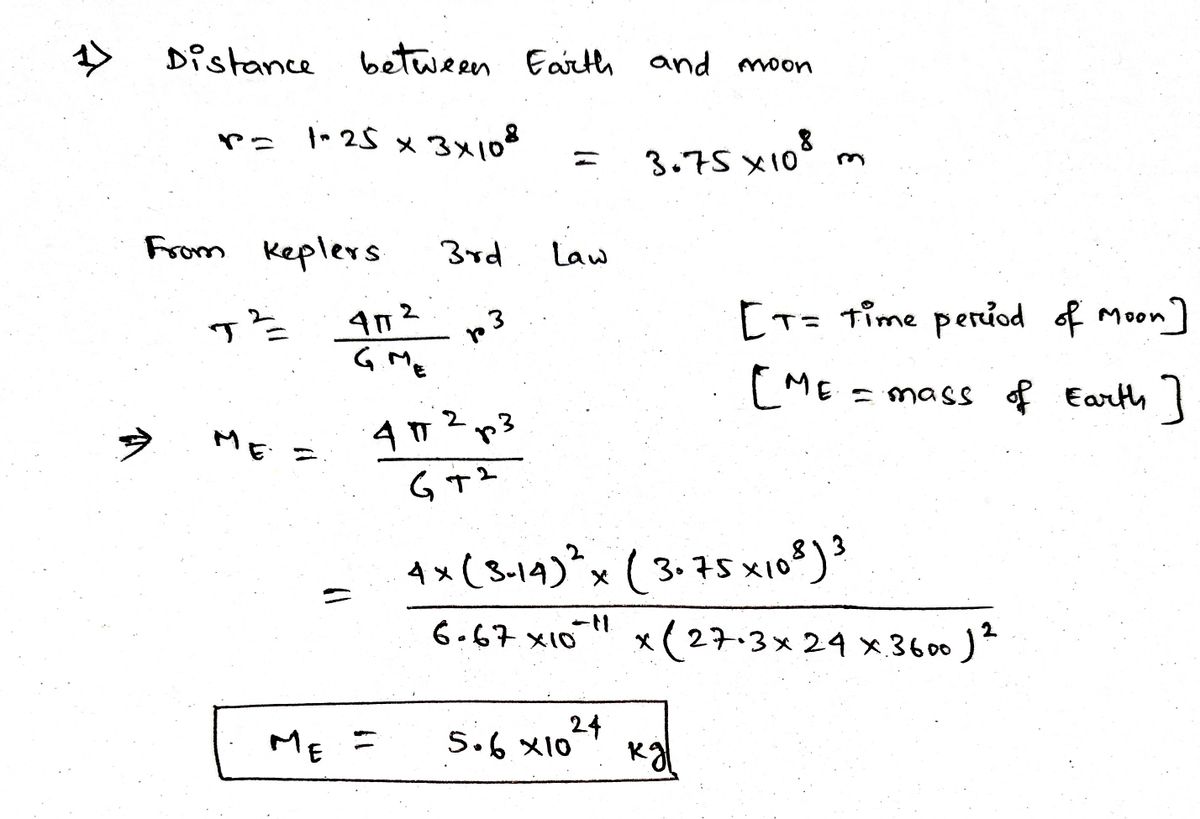 1) Distance between Earth and moon
r = 1.25 × 3×10⁸ = 3.75 ×10⁸ m
From Keplers 3rd Law
T² = 4π² / G M_E r³ [T = Time period of Moon]
[M_E = mass of Earth]
⇒ M_E = 4π² r³ / G T²
= 4 × (3.14)² × (3.75 ×10⁸)³ / 6.67 ×10⁻¹¹ × (27.3 × 24 × 3600)²
M_E = 5.6 ×10²⁴ kg